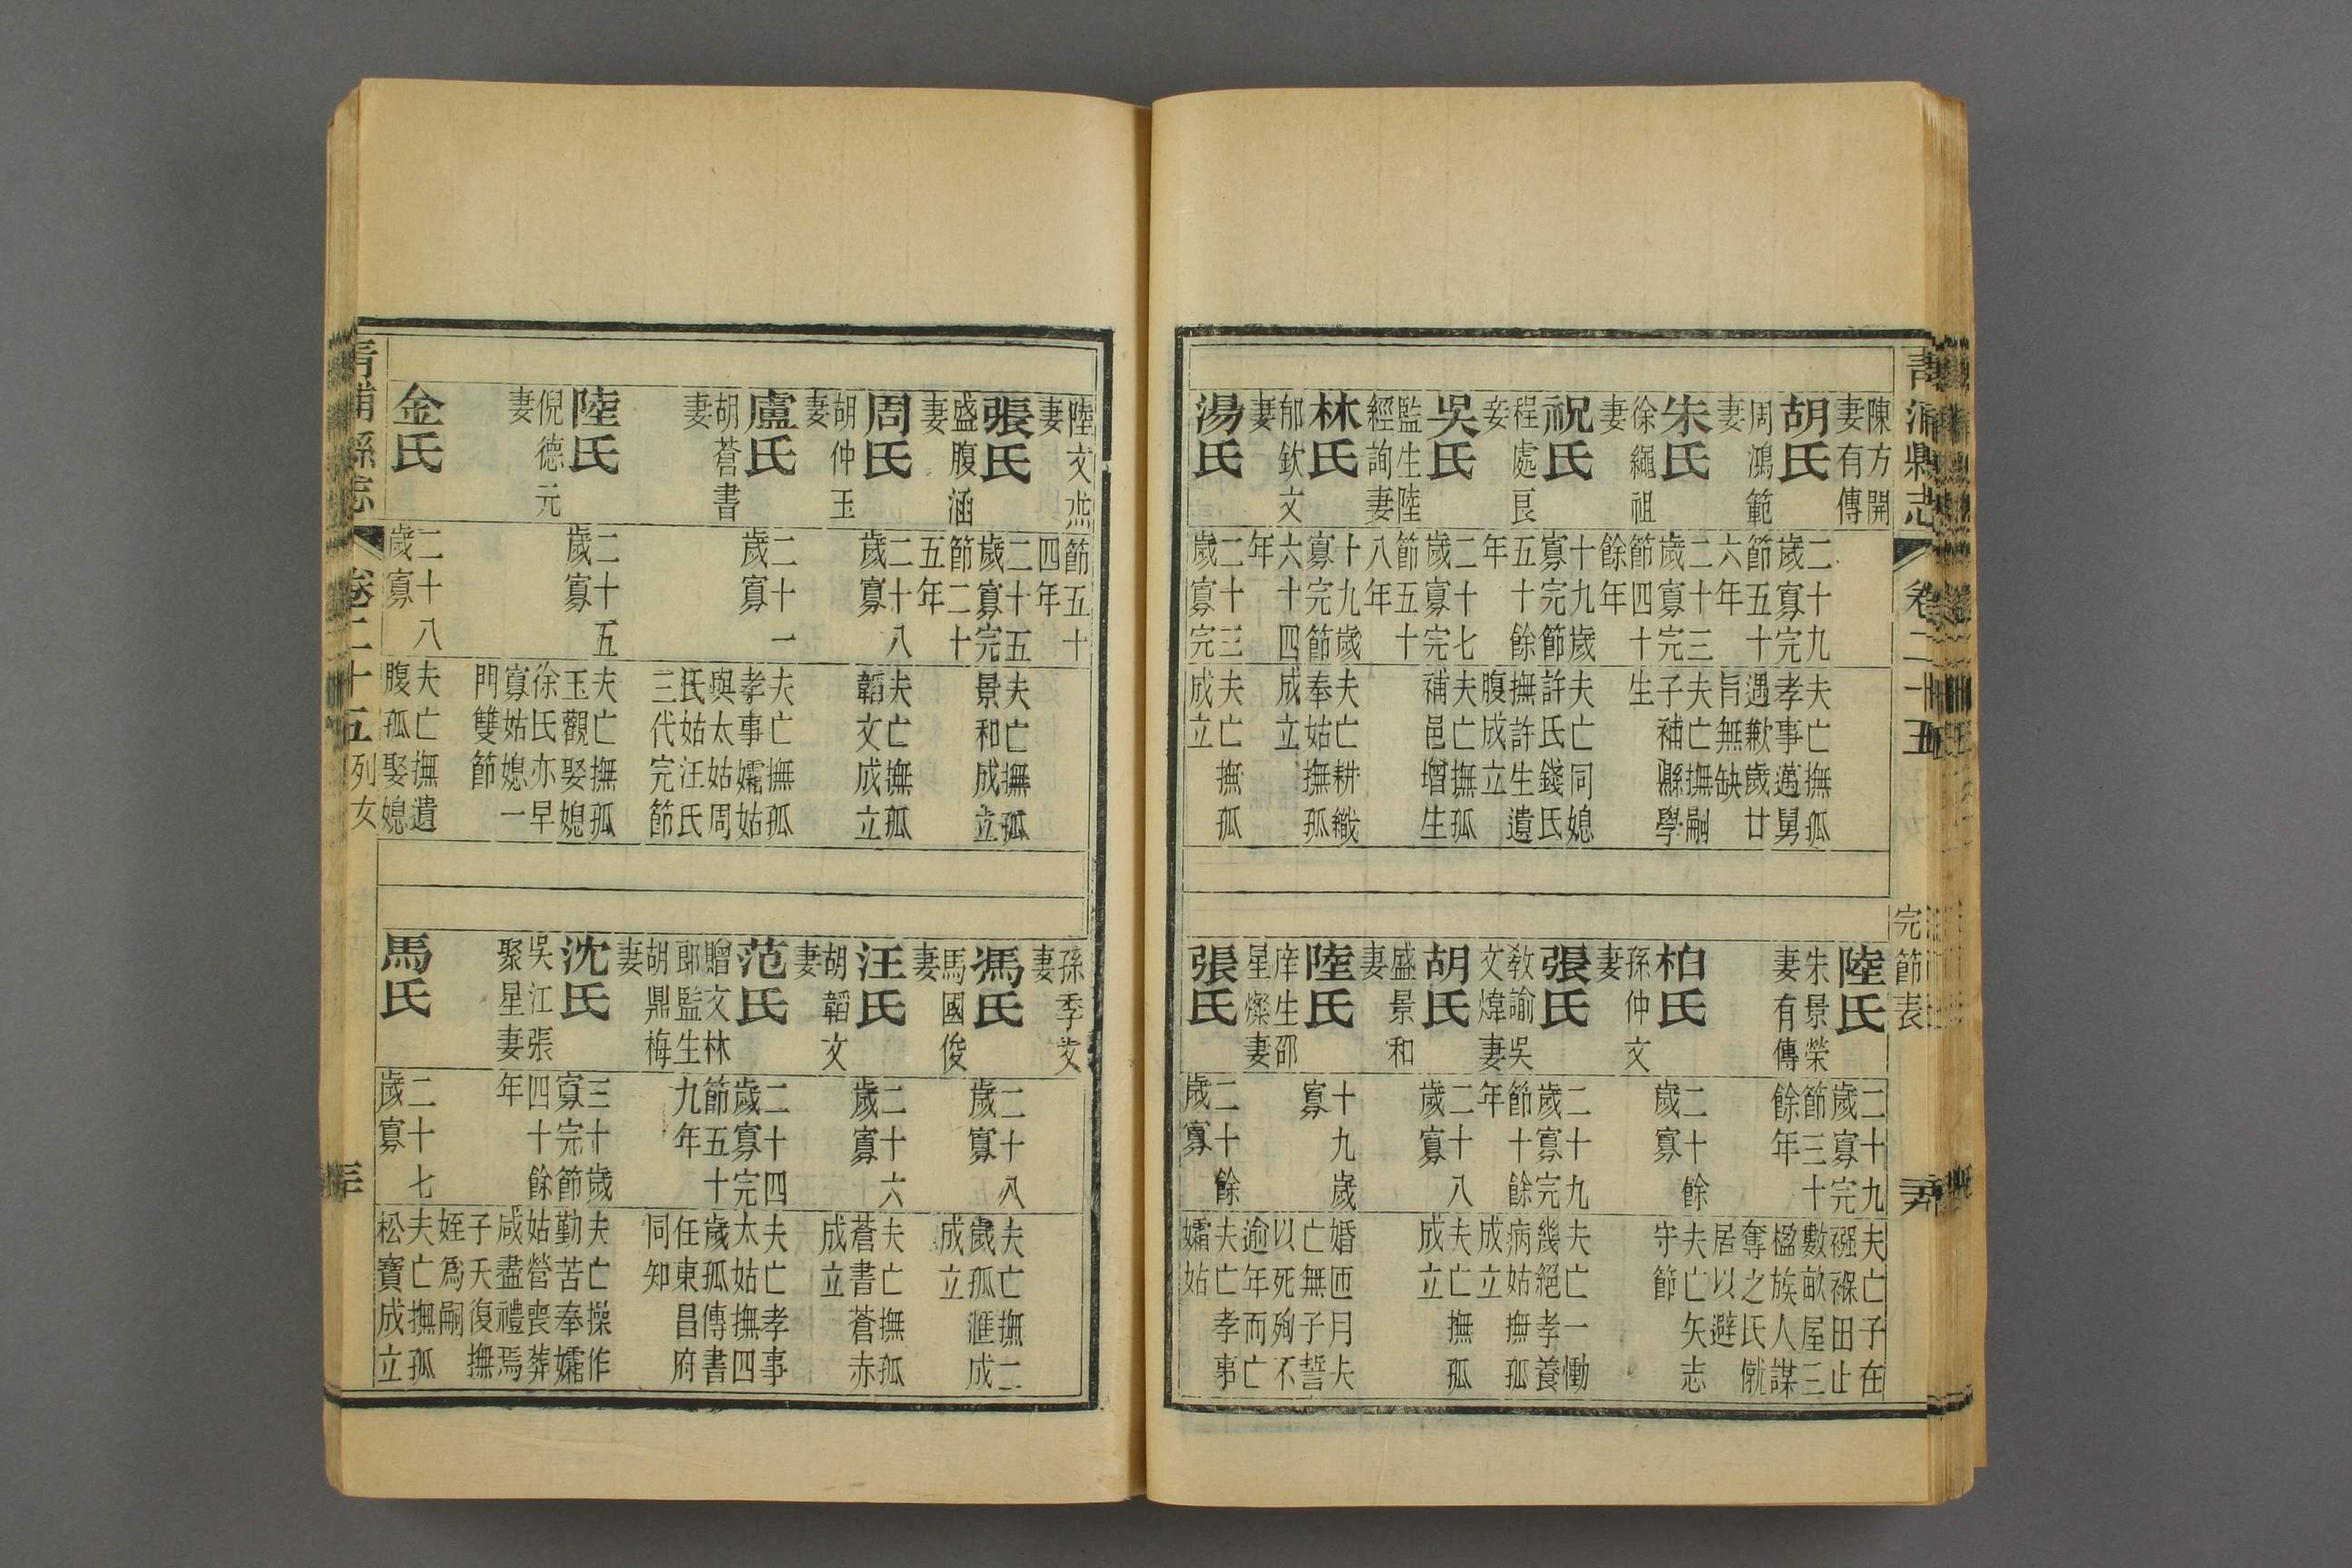 青浦縣志
卷二十五
完節表
陳方開
妻有傳
胡氏
周鴻範
妻
二十九
歲寡完
節五十
六年
夫亡撫孤
孝事邁舅
遇歉歲甘
旨無缺
朱氏
徐繩祖
妻
二十三
歲寡完
節四十
餘年
夫亡撫嗣
子補縣學
生
祝氏
程處良
妾
十九歲
寡完節
五十餘
年
夫亡同媳
許氏錢氏
撫許生遺
腹成立
吳氏
監生陸
經詢妻
二十七
歲寡完
節五十
八年
夫亡撫孤
補邑增生
林氏
郁欽文
妻
十九歲
寡完節
六十四
年
夫亡耕織
奉姑撫孤
成立
湯氏
二十三
歲寡完
夫亡撫孤
成立
陸氏
朱景榮
妻有傳
二十九
歲寡完
節三十
餘年
夫亡子在
襁褓田止
數畝屋三
楹族人謀
奪之氏僦
居以避
柏氏
孫仲文
妻
二十餘
歲寡
夫亡矢志
守節
張氏
教諭吳
文煒妻
二十九
歲寡完
節十餘
年
夫亡一慟
幾絕孝養
病姑撫孤
成立
胡氏
盛景和
妻
二十八
歲寡
夫亡撫孤
成立
陸氏
庠生邵
星燦妻
十九歲
寡
婚匝月夫
亡無子誓
以死殉不
逾年而亡
張氏
二十餘
歲寡
夫亡孝事
孀姑
陸文烝
妻
節五十
四年
張氏
盛腹涵
妻
二十五
歲寡完
節二十
五年
夫亡撫孤
景和成立
周氏
胡仲玉
妻
二十八
歲寡
夫亡撫孤
韜文成立
盧氏
胡蒼書
妻
二十一
歲寡
夫亡撫孤
孝事孀姑
與太姑周
氏姑汪氏
三代完節
陸氏
倪德元
妻
二十五
歲寡
夫亡撫孤
玉觀娶媳
徐氏亦早
寡姑媳一
門雙節
金氏
二十八
歲寡
夫亡撫遺
腹孤娶媳
孫季文
妻
馮氏
馬國俊
妻
二十八
歲寡
夫亡撫二
歲孤滙成
成立
汪氏
胡韜文
妻
二十六
歲寡
夫亡撫孤
蒼書蒼赤
成立
范氏
贈文林
郎監生
胡鼎梅
妻
二十四
歲寡完
節五十
九年
夫亡孝事
太姑撫四
歲孤傳書
任東昌府
同知
沈氏
吳江張
聚星妻
三十歲
寡完節
四十餘
年
夫亡操作
勤苦奉孀
姑營喪葬
咸盡禮焉
子夭復撫
姪爲嗣
馬氏
二十七
歲寡
夫亡撫孤
松寶成立
青浦縣志
卷二十五
列女